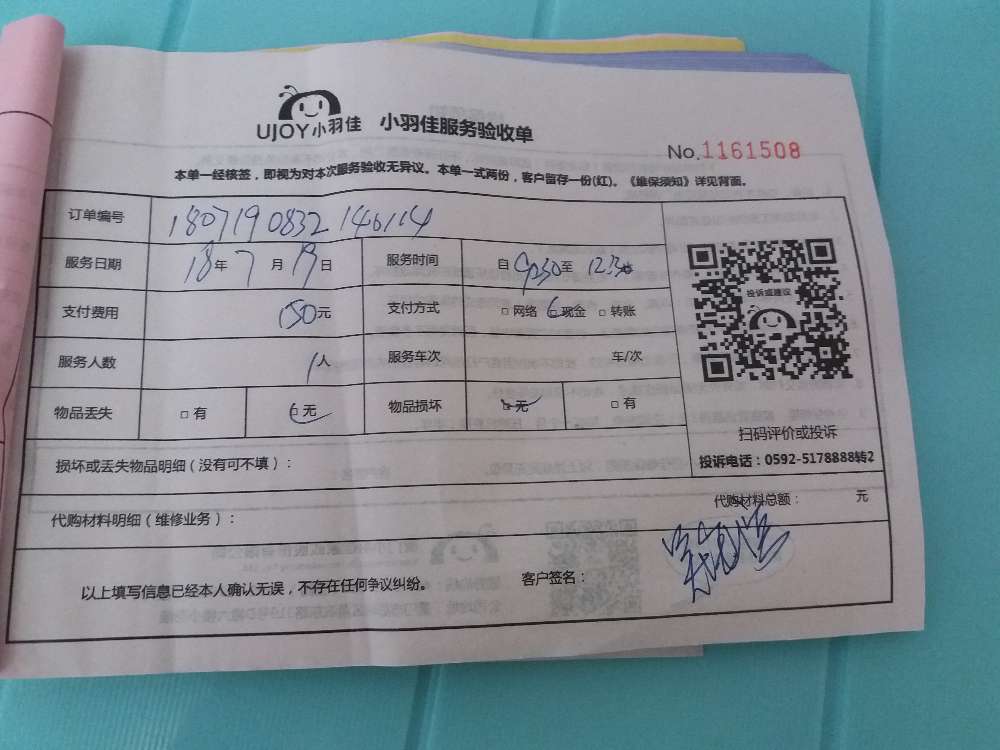 UJOY小羽佳 小羽佳服务验收单
No.1161508
本单一经核签，即视为对本次服务验收无异议。本单一式两份，客户留存一份(红)。《维保须知》详见背面。
订单编号 180719083214​6114
服务日期 18年7月19日 服务时间 自9:30至12:30
支付费用 150元 支付方式 □网络 □现金 □转账
服务人数 1人 服务车次 车/次
物品丢失 □有 □无 物品损坏 □无 □有
投诉或建议
扫码评价或投诉
投诉电话：0592-5178888转2
损坏或丢失物品明细（没有可不填）：
代购材料明细（维修业务）： 代购材料总额： 元
以上填写信息已经本人确认无误，不存在任何争议纠纷。 客户签名：